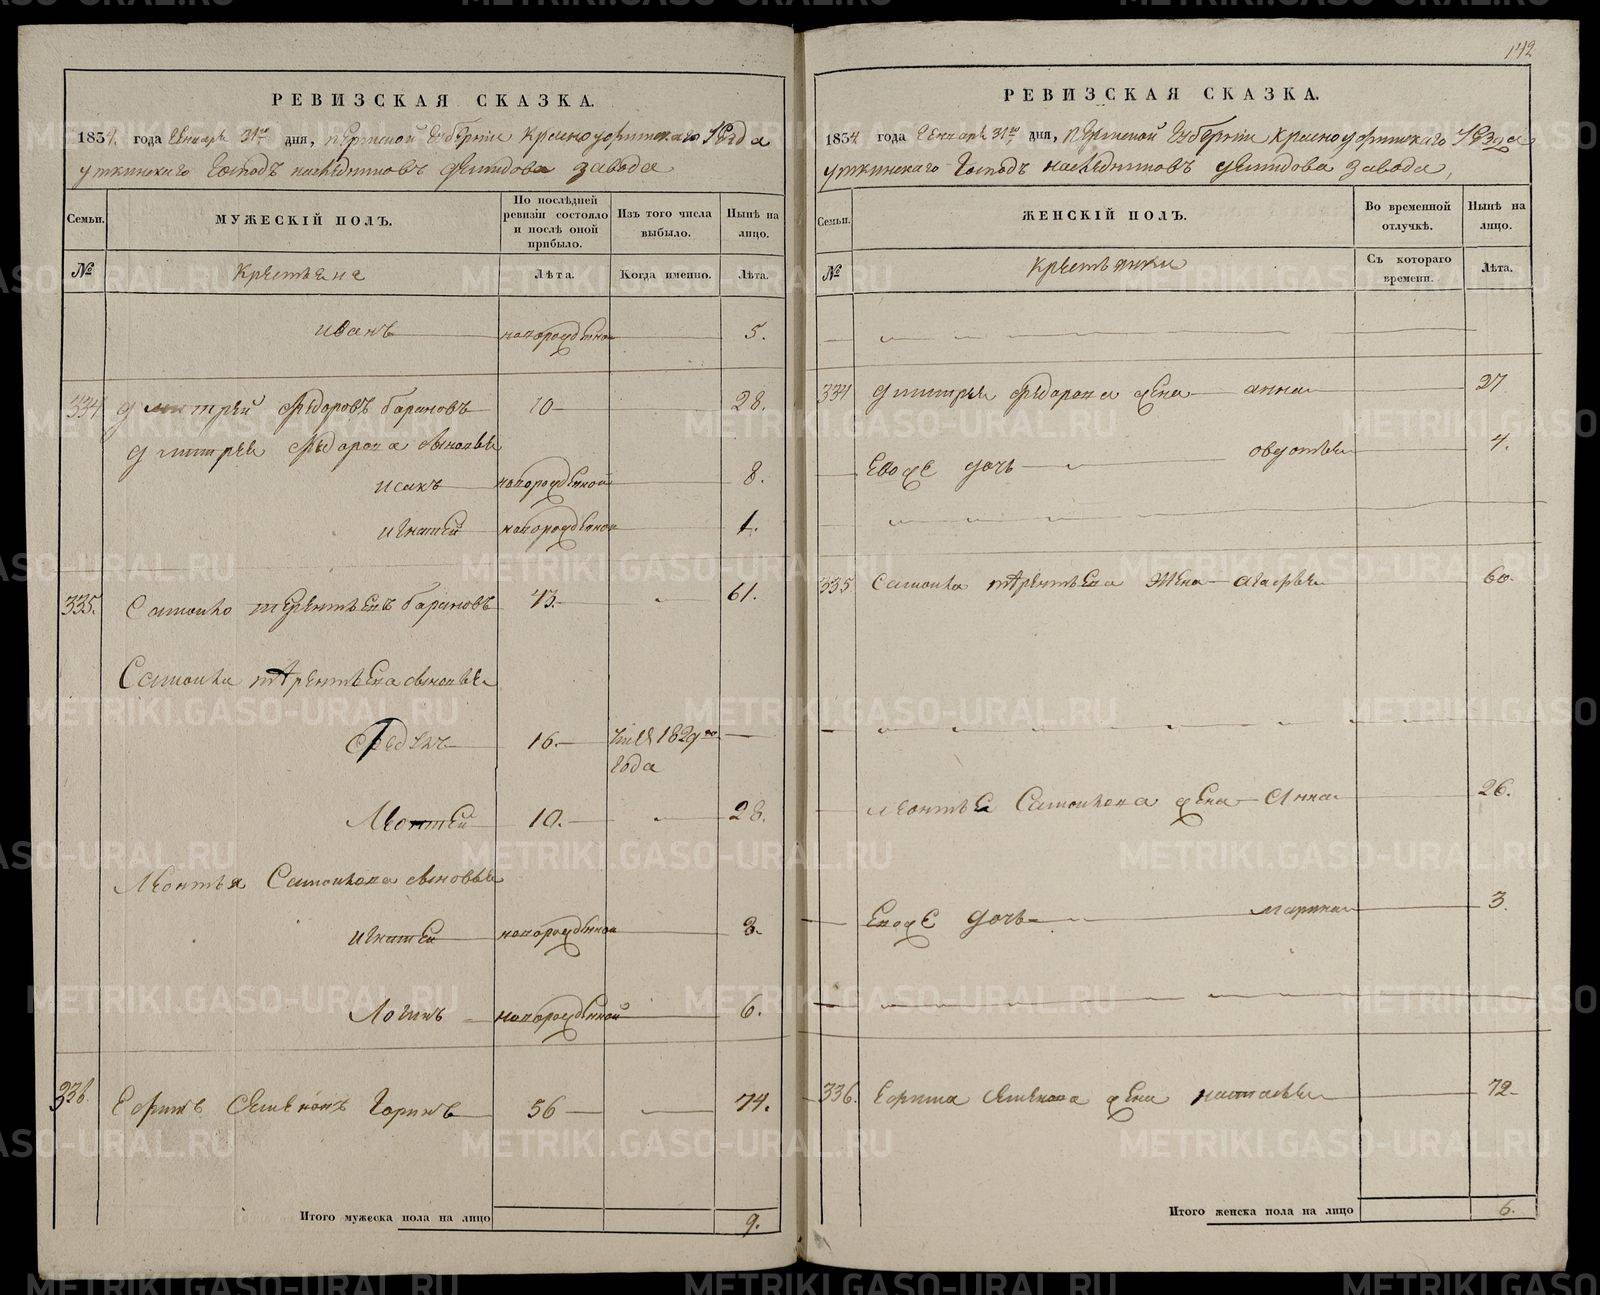 142
РЕВИЗСКАЯ СКАЗКА.
1834. года Генваря 31го дня, Пермской Губернии Красноуфимскаго Уезда
Уткинскаго Господъ наследниковъ Демидова завода
Семьи.
МУЖЕСКІЙ ПОЛЪ.
По послѣдней ревизіи состояло и послѣ оной прибыло.
Изъ того числа выбыло.
Нынѣ на лицо.
№
Крестьяне
Лѣта.
Когда именно.
Лѣта.
Иванъ новорожденной 5.
334 Дмитрей Федоровъ Барановъ 10 28.
Дмитрея Федорова сыновья
Исакъ новорожденной 8.
Игнатей новорожденной 1.
335. Самойло Терентьевъ Барановъ 43. 61.
Самойла Терентьева сыновья
16. 1829го года
Леонтей 10. 28.
Леонтья Самойлова сыновья
Игнатей новорожденной 3.
Логинъ новорожденной 6.
336. Ефимъ Семеновъ Горинъ 56 74.
Итого мужеска пола на лицо 9.
РЕВИЗСКАЯ СКАЗКА.
1834 года Генваря 31го дня, Пермской Губернии Красноуфимскаго Уезда
Уткинскаго Господъ наследниковъ Демидова завода,
Семьи.
ЖЕНСКІЙ ПОЛЪ.
Во временной отлучкѣ.
Нынѣ на лицо.
№
Крестьянки
Съ котораго времени.
Лѣта.
334 Дмитрея Федорова жена Анна 27
Евоже дочь Овдотья 4.
335 Самойла Терентьева жена Агафья 60.
Леонтье Самойлова жена Анна 26.
Евоже дочь Марина 3.
336. Ефима Семенова жена Настасья 72.
Итого женска пола на лицо 6.
METRIKI.GASO-URAL.RU